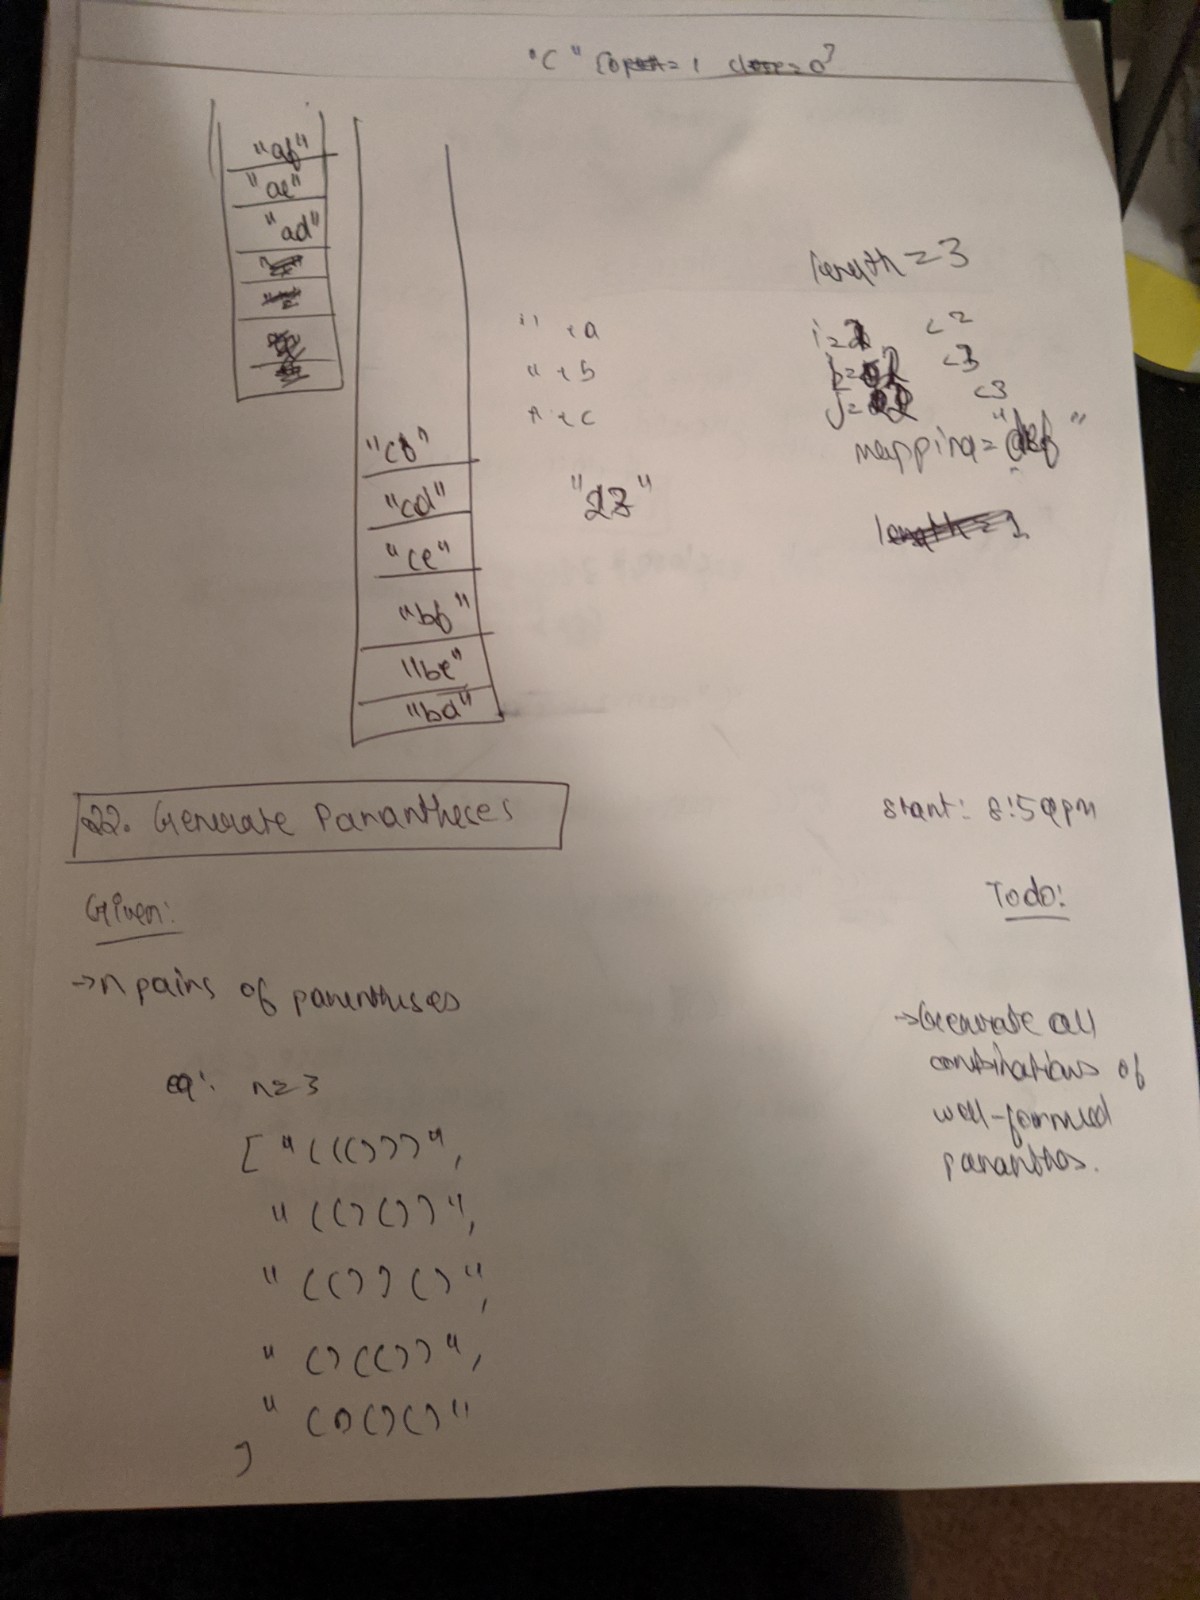 "(" {open=1 close=0}
"af"
"ae"
"ad"
"cf"
"cd"
"ce"
"bf"
"be"
"bd"
"" +a
"" +b
"" +c
"23"
length=3
<2
<3
<3
mapping="def"
length=1
22. Generate Parantheces
start: 8:59pm
Given:
Todo:
→n pairs of parentheses
→Generate all
combinations of
well-formed
paranthes.
eg: n=3
["((()))",
"(()())",
"(())()",
"()(())",
"()()()"
]